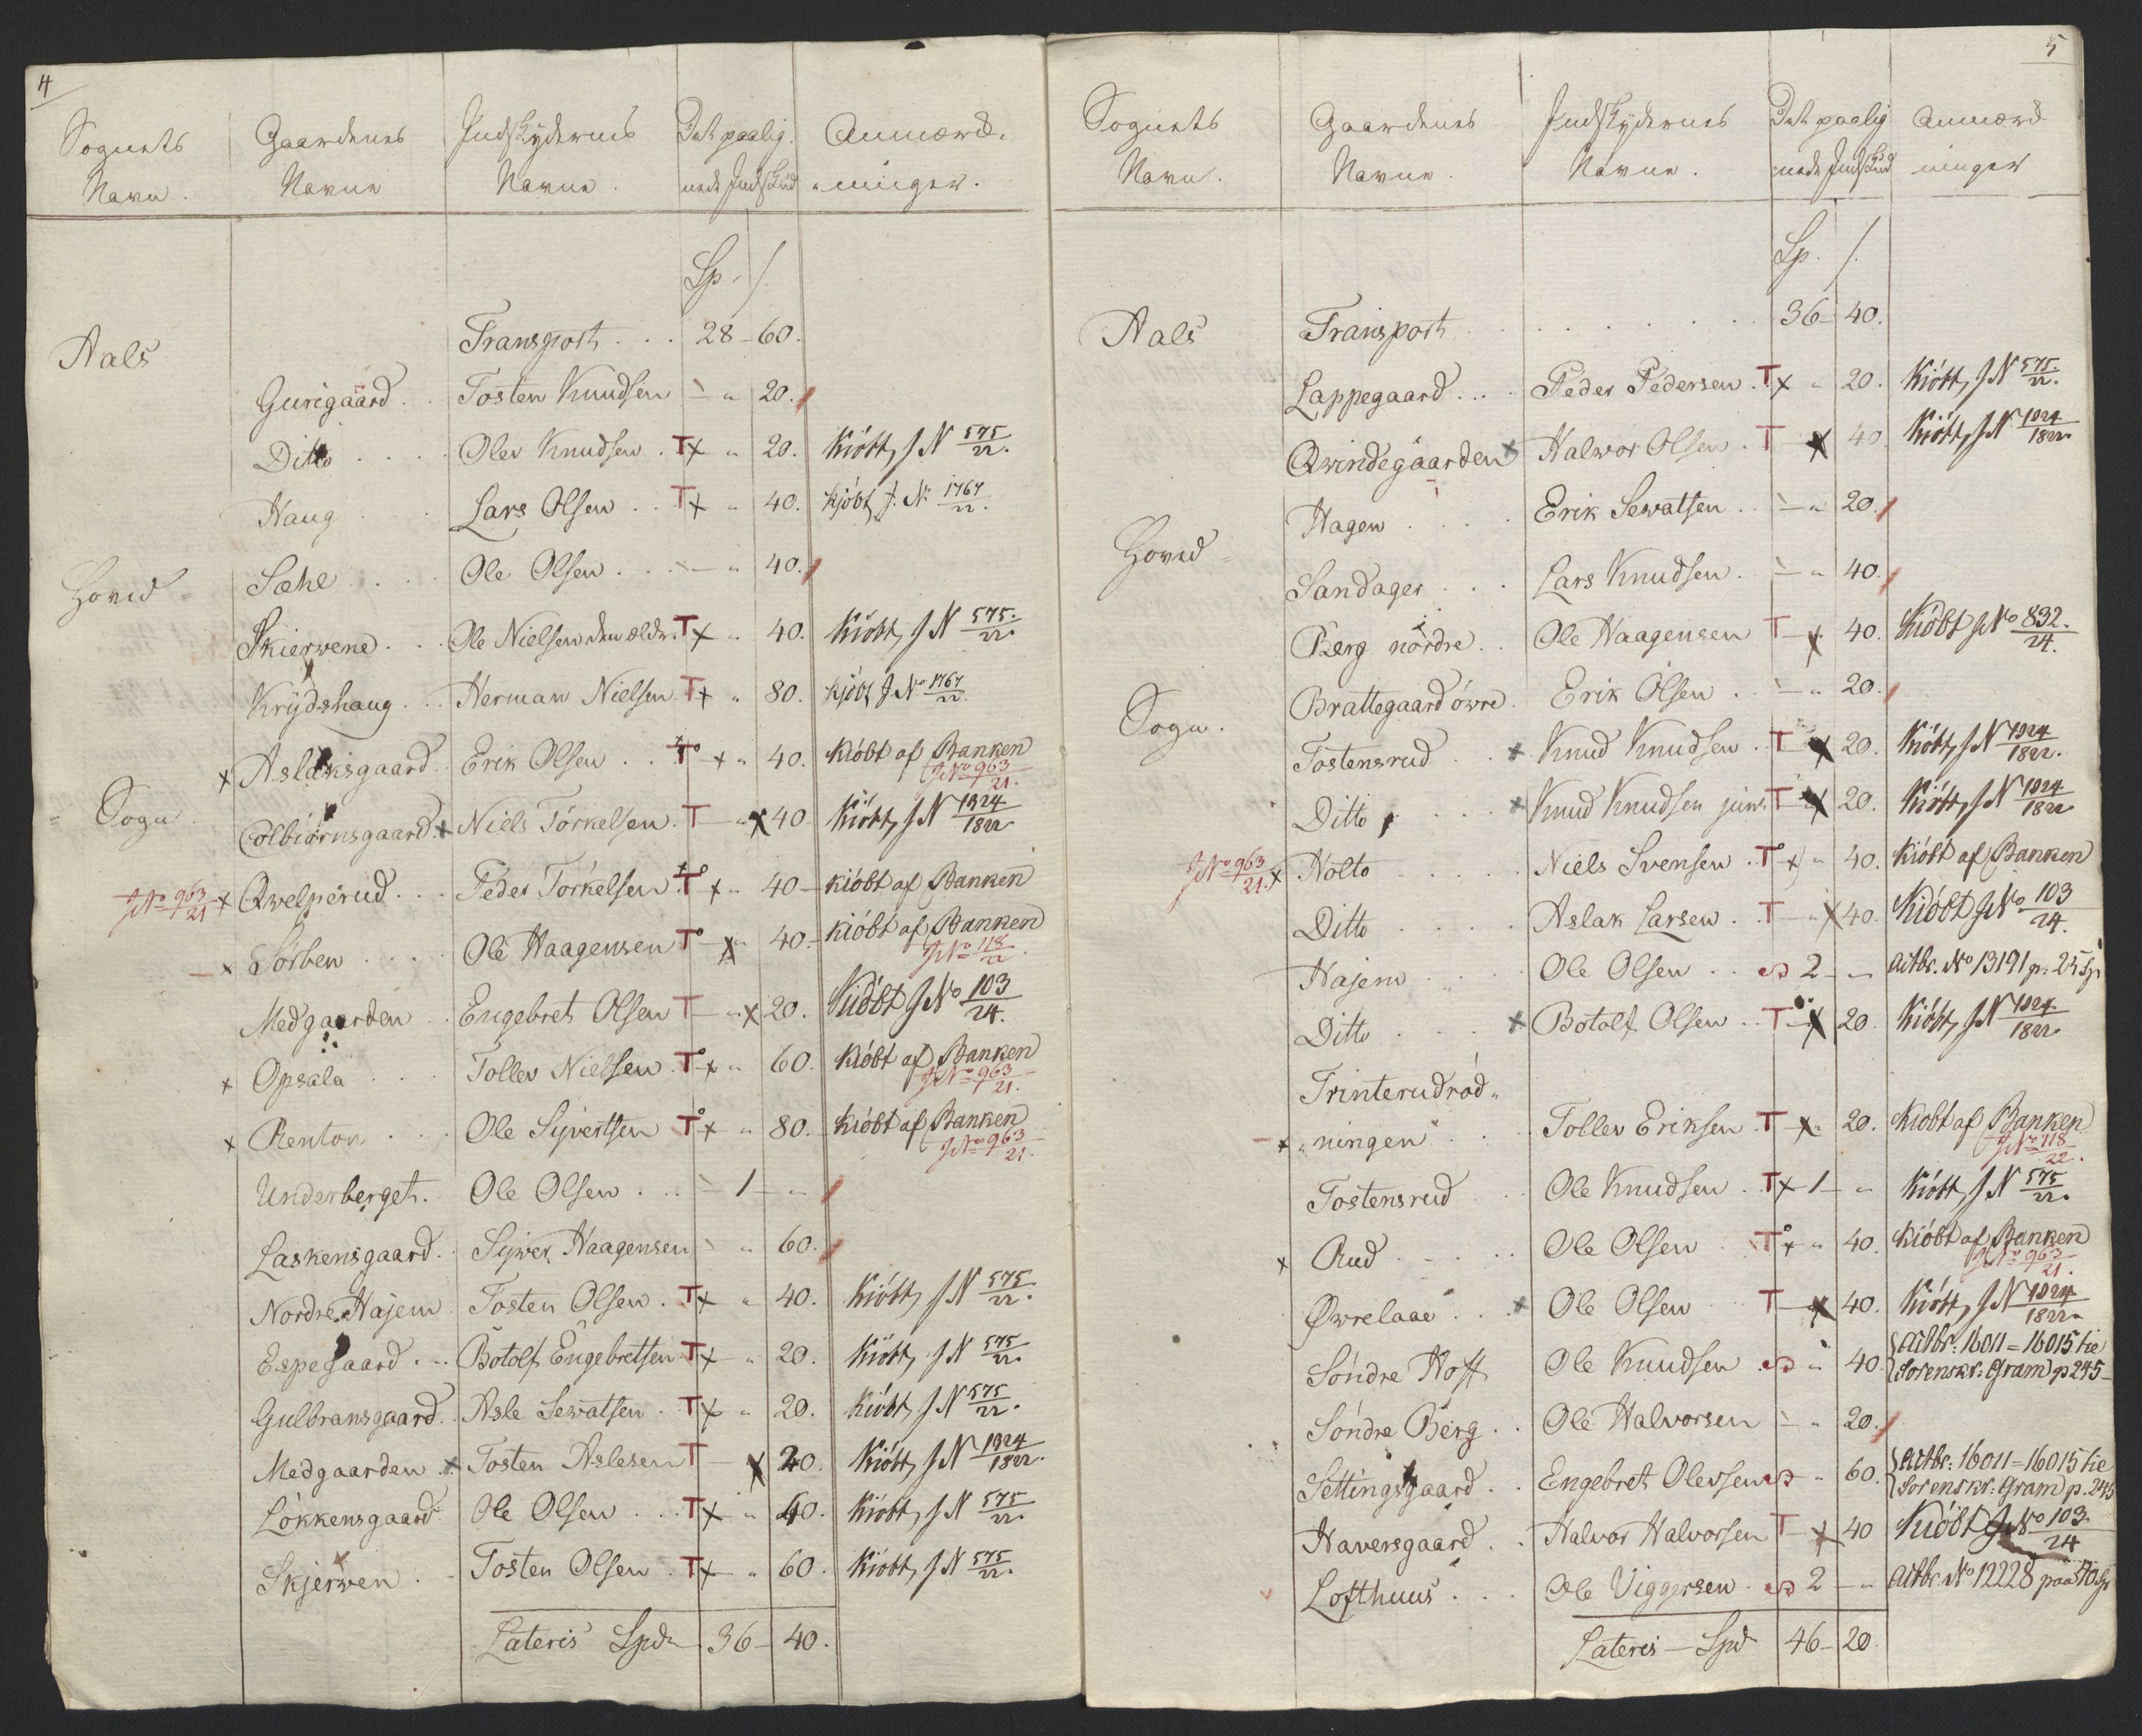 4
Sognets Navn. | Gaardenes Navne | Indskydernes Navne. | Det paalignede Indskud | Anmærkninger.
Sp. s.
Aals Transport . . . 28 - 60.
Gurigaard . . Tosten Knudsen - " 20.
Ditto . . . . Olev Knudsen . T x " 20. Kiöbt, J N 575/22.
Haug . . Lars Olsen . . T x " 40. kjöbt J. N. 1767/22.
Hoved= Sæhl . . . . Ole Olsen . . . - " 40.
Skierwene . . . Ole Nielsen den ældr. T x " 40. Kiöbt, J N 575./22.
Krydshaug . . . Herman Nielsen T x " 80. kjöbt J No 1767/22.
x Aslaksgaard . Erik Olsen . . T° x " 40. Kiöbt af Banken
JNo 963/21.
= Sogn Colbiörnsgaard. x Niels Törkelsen . T - " x 40 Kiöbt, J N 1924/1822
JNo 963/21 x Qwelperud . . . Peder Törkelsen . T° x " 40 - kiöbt af Banken
- x Sörben . . . . Ole Haagensen T° x " 40 - kiöbt af Banken
JNo 118/22.
Medgaarden . . Engebret Olsen T - " x 20. Kiöbt JNo 103/24.
x Opsala . . . Tollev Nielsen . T° x " 60. kiöbt af Banken
JNo 963/21.
x Renton . . . Ole Syvertsen T° x " 80. kiöbt af Banken
JNo 963/21.
Underberget. Ole Olsen . . . - 1 - "
Laskensgaard. . Sywer Haagensen " 60.
Nordre Hajem . Tosten Olsen . T x " 40. Kiöbt, J N 575./22.
Espegaard . . . Botolf Engebretsen T x " 20. Kiöbt, J N 575/22.
Gulbransgaard. . Asle Sewatsen . T x " 20. Kiöbt, J N 575/22.
Medgaarden . x Tosten Aslesen T - x 20. Kiöbt, J N 1924/1822.
Lökkensgaard Ole Olsen . . . T x " 40. Kiöbt, J N 575/22.
Skjerwen . . Tosten Olsen . T x " 60. Kiöbt, J N 575/22.
Lateris Spd 36 - 40.
5
Sognets Navn. | Gaardenes Navne. | Indskydernes Navne. | Det paalignede Indskud | Anmærkninger
Sp. s.
Aals Transport . . . . . . . 36 - 40.
Lappegaard . . . Peder Pedersen . T x " 20. Kiöbt, J N 575./22.
Qwindegaarden x Halwor Olsen . T - x 40 Kiöbt, J N 1924/1822.
Hagen . . . . Erik Sewatsen . . - " 20.
Hoved= Sandager . . . Lars Knudsen . - " 40.
Berg nördre . . Ole Haagensen T - x 40. Kiöbt JNo 832./24.
Brattegaard öwre . Erik Olsen . - " 20.
Sogn. Tostensrud . . x Knud Knudsen . T - x 20. Kiöbt, J N 1924/1822.
Ditto . . . . x Knud Knudsen jun. T - x 20. Kiöbt, J N 1924/1822
JNo 963/21. x Holto . . . . . Niels Svensen . T° x " 40. kiöbt af Banken
Ditto . . . . . Aslak Larsen . . T - " x 40. Kiöbt JNo 103/24.
Hajem . . . Ole Olsen . . 2 - - Actbr. No 13191 p: 25 Sp
Ditto . . . x Botolf Olsen . . T° - x 20. Kiöbt, J N 1924./1822.
Trinterudröd-
- x -ningen . . . Tollev Eriksen . T - x " 20. Kiöbt af Banken
JNo 118/22.
Tostensrud . . . Ole Knudsen . T x 1 - " Kiöbt, J N 575/22.
x Rud . . . . . Ole Olsen . T° x " 40. Kiöbt af Banken
JNo 963/21.
Øwrelaae . . . x Ole Olsen . . T - x 40. Kiöbt, J N 1924/1822.
Söndre Hoff Ole Knudsen " 40 { Actbr: 16011 = 16015 tie
Sorenskr: Gram p 245 -
Söndre Berg . . Ole Halvorsen - " 20.
Settingsgaard . . Engebret Olevsen " 60. { Actbr: 16011 = 16015 tie
Sorenskr: Gram p. 245
Haversgaard . . Halvor Halvorsen T - x 40 Kiöbt JNo 103./24
Lofthuus . . . Ole Viggersen . 2 - " Actbr. No 12228 paa 70 Sp
Lateris - Spd 46 - 20.